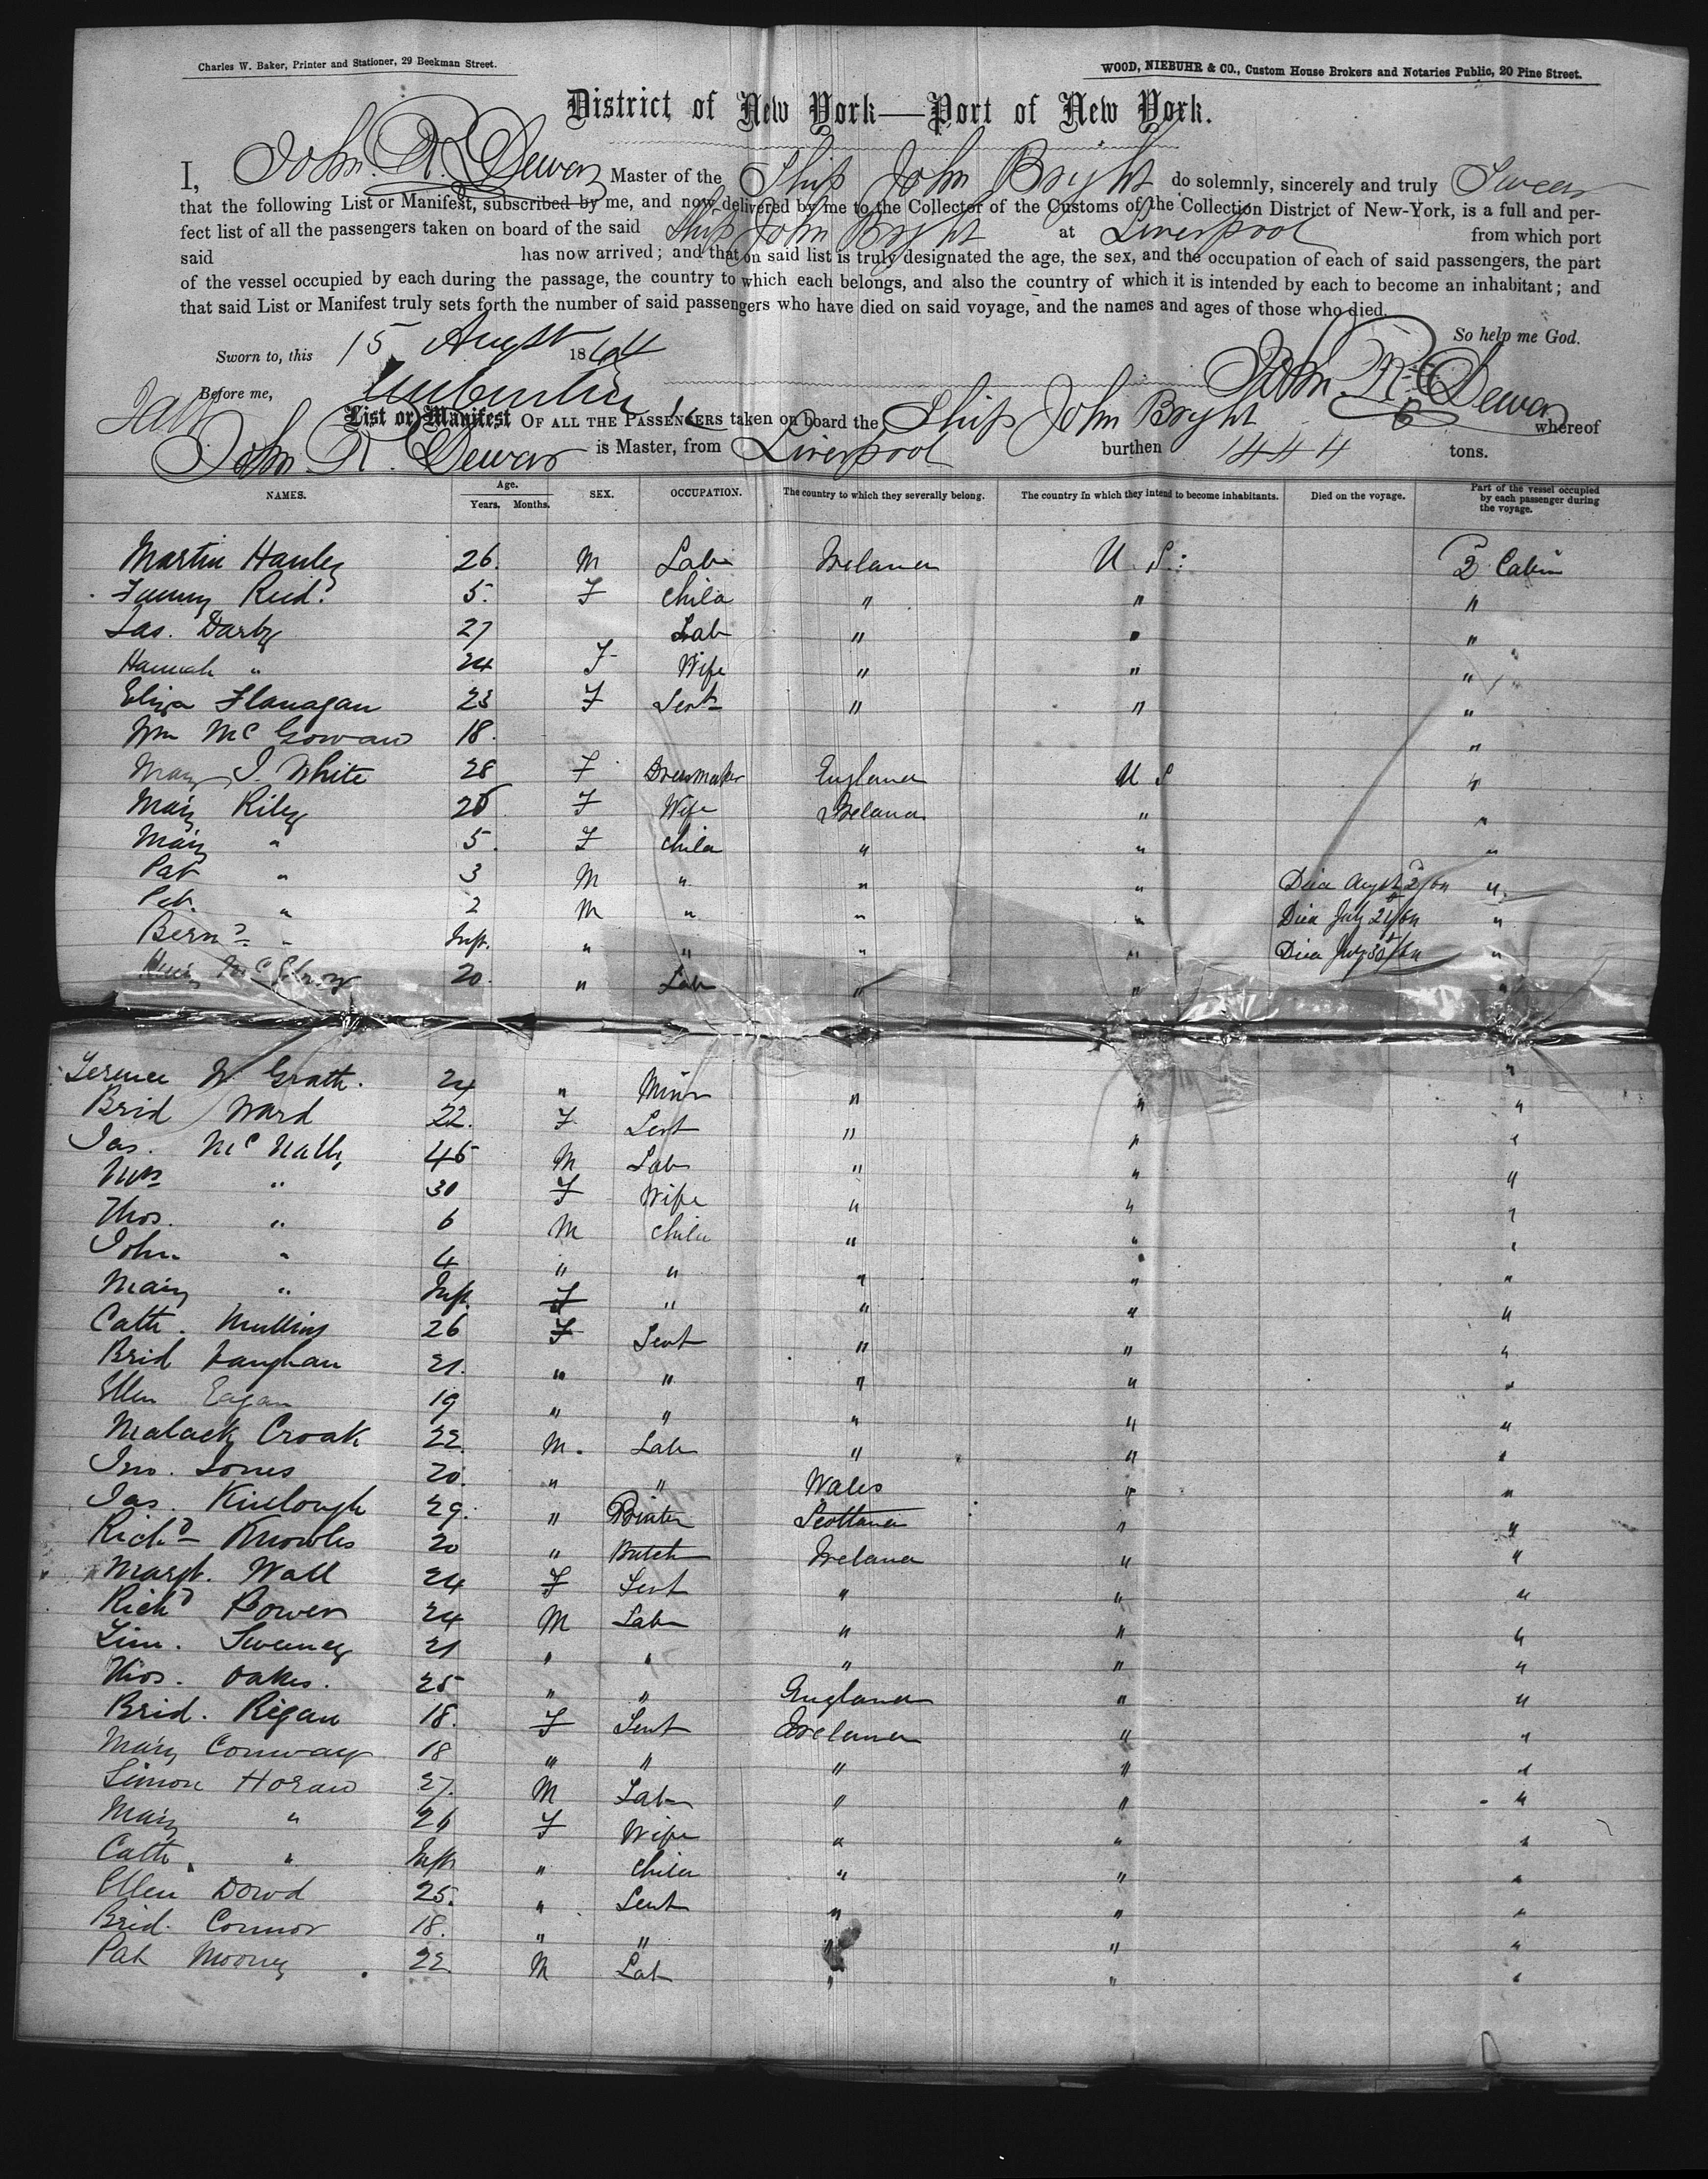 Charles W. Baker, Printer and Stationer, 29 Beekman Street.
WOOD, NIEBUHR & CO., Custom House Brokers and Notaries Public, 20 Pine Street.
District of New York—Port of New York.
I, John. R. Dewar Master of the Ship John Bright do solemnly, sincerely and truly Swear
that the following List or Manifest, subscribed by me, and now delivered by me to the Collector of the Customs of the Collection District of New-York, is a full and per-
fect list of all the passengers taken on board of the said Ship John Bright at Liverpool from which port
said has now arrived; and that on said list is truly designated the age, the sex, and the occupation of each of said passengers, the part
of the vessel occupied by each during the passage, the country to which each belongs, and also the country of which it is intended by each to become an inhabitant; and
that said List or Manifest truly sets forth the number of said passengers who have died on said voyage, and the names and ages of those who died.
So help me God.
Sworn to, this 15 Augst 1864
John. R. Dewar
Before me,
List or Manifest OF ALL THE PASSENGERS taken on board the Ship John Bright whereof
John R. Dewar is Master, from Liverpool burthen 1444 tons.
NAMES. Age. Years. Months. SEX. OCCUPATION. The country to which they severally belong. The country in which they intend to become inhabitants. Died on the voyage. Part of the vessel occupied by each passenger during the voyage.
Martin Hanley 26. M Lab Ireland U. S. 2 Cabin
Reid. 5. F Child " " "
Jas. Darby 27 Lab " " "
Hannah " 24 F Wife " " "
Eliza Flanagan 23 F Servt " " "
Wm McGowan 18. "
Mary J. White 28 F Dressmaker England U S "
Mary Riley 25 F Wife Ireland " "
Mary " 5. F Child " " "
Pat " 3 M " " " Died Augst 2/64 "
" 2 M " " " Died July /64 "
Bernd " Inft. " " " " Died July 30/64 "
20. " Lab " " "
Terence McGrath. 24 " Minr " " "
Brid Ward 22. F Servt " " "
Jas. McNally 45 M Lab " " "
Mrs " 30 F Wife " " "
Thos. " 6 M Child " " "
John " 4 " " " " "
Mary " Inft. F " " " "
Cath. Mullins 26 F Servt " " "
Brid Vaughan 21. " " " " "
Ellen Eagan 19 " " " " "
Malack Croak 22. M. Lab " " "
Jno. Jones 20. " " Wales " "
Jas. Kinlough 29. " Printer Scotland " "
Richd Knowles 20 " Butch Ireland " "
Margt. Wall 24 F Servt " " "
Richd Power 24 M Lab " " "
Tim. Sweeney 21 " " " " "
Thos. Oakes. 25 " " England " "
Brid. Regan 18. F Servt Ireland " "
Mary Conway 18 " " " " "
Simon Horan 27. M Lab " " "
Mary " 26 F Wife " " "
Cath. " Inft " Child " " "
Ellen Dowd 25. " Servt " " "
Brid. Connor 18. " " " " "
Pat Mooney 22 M Lab " " "